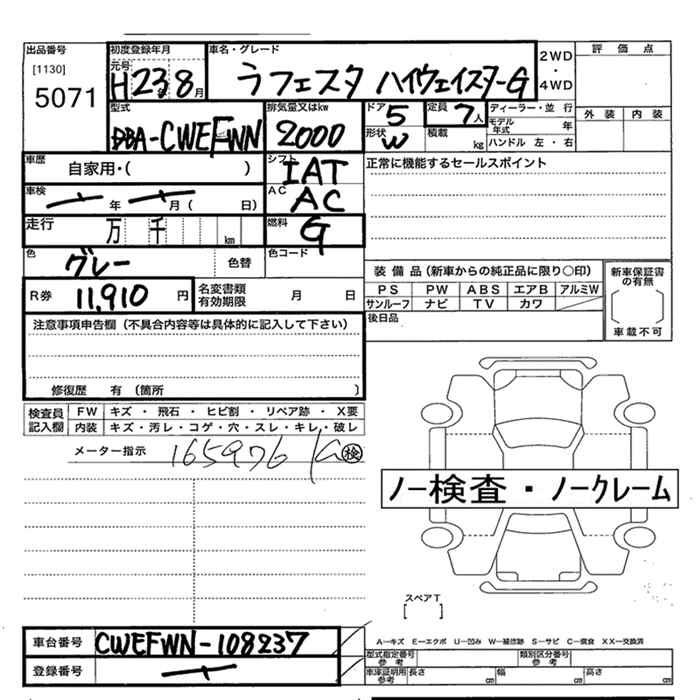 出品番号
[1130]
5071
初度登録年月
元号 H 23年 8月
車名・グレード
ラフェスタ ハイウェイスター G
2WD ・ 4WD
評価点
外装 内装
型式
DBA-CWEFWN
排気量又はkw
2000
ドア 5
形状 W
定員 7人
積載 kg
ディーラー・並行
モデル年式 年
ハンドル 左・右
車歴
自家用・( )
シフト
IAT
正常に機能するセールスポイント
車検
年 月( 日)
AC
AC
走行
万 千 km
燃料
G
色
グレー
色替
色コード
R券 11,910 円
名変書類有効期限 月 日
装備品(新車からの純正品に限り○印)
PS PW ABS エアB アルミW
サンルーフ ナビ TV カワ
新車保証書の有無
車載不可
後日品
注意事項申告欄(不具合内容等は具体的に記入して下さい)
修復歴 有(箇所 )
検査員記入欄
FW キズ・飛石・ヒビ割・リペア跡・X要
内装 キズ・汚レ・コゲ・穴・スレ・キレ・破レ
メーター指示 165976 Km 検
ノー検査・ノークレーム
スペアT
[ ]
車台番号 CWEFWN-108237
登録番号
A-キズ E-エクボ U-凹み W-補修跡 S-サビ C-腐食 XX-交換済
型式指定番号 参考
類別区分番号 参考
車庫証明用 参考
長さ cm 幅 cm 高さ cm